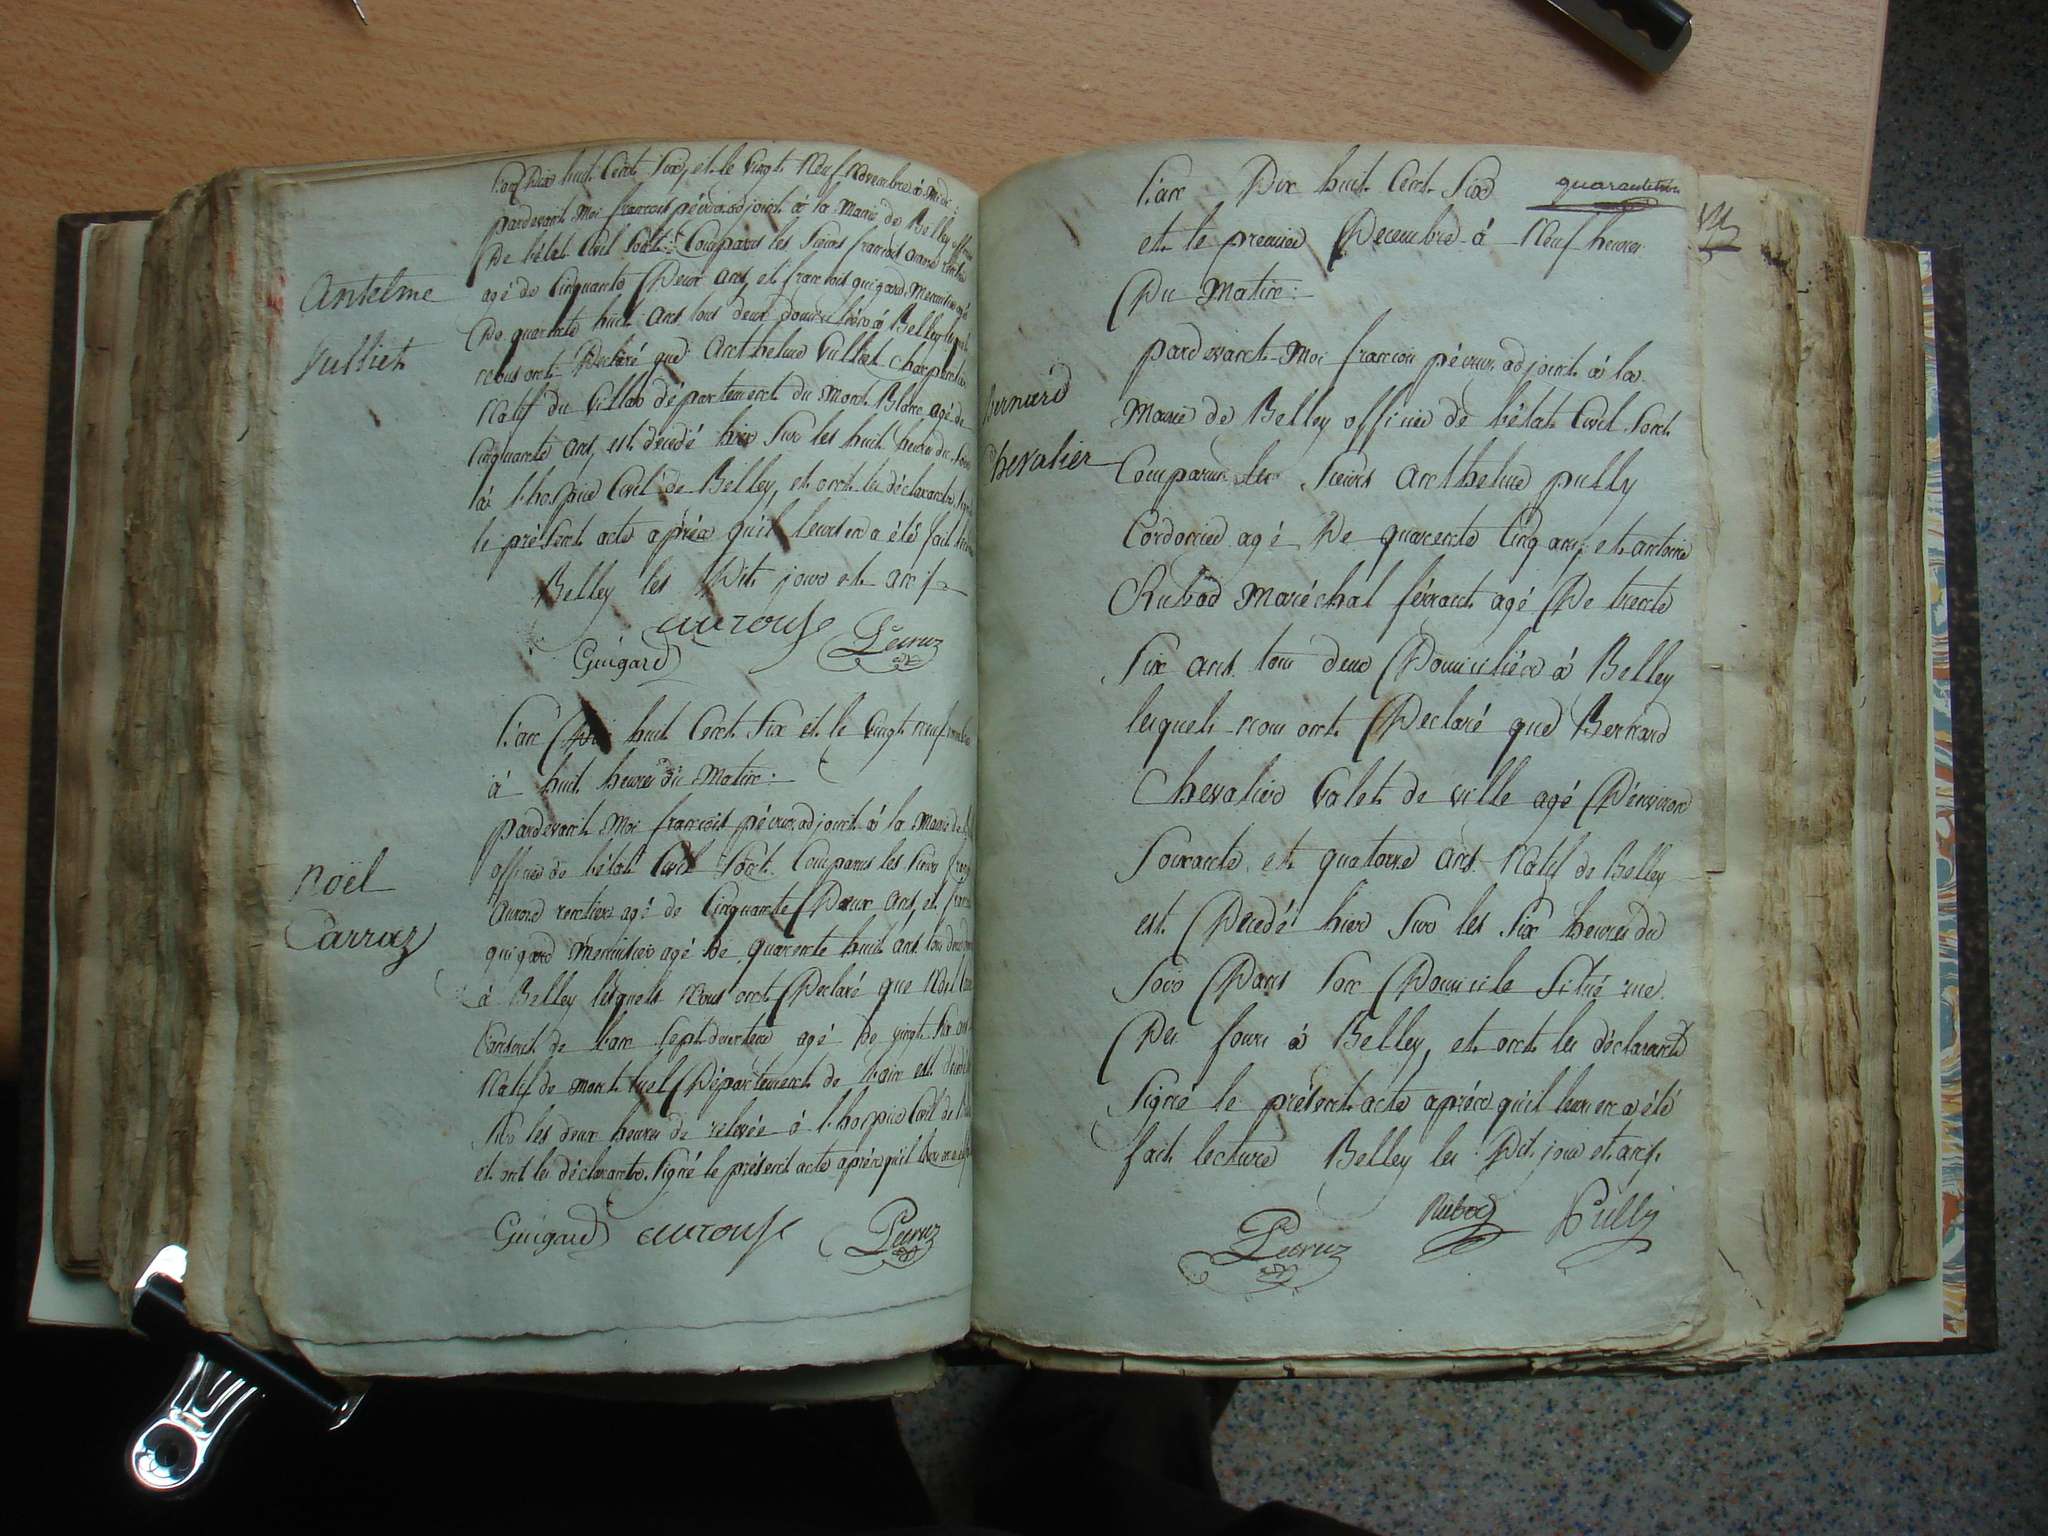 L'an Dix huit Cent Six, et le vingt Neuf Novembre à midi :
pardevant Moi françois pécruz adjoint à la Mairie de Belley officier
De l'état Civil Sont Comparus les Sieurs françois rentier
agé de Cinquante Deux ans, et francois guigard Menuisier agé
De quarente huit Ans tous deux domiciliés à Belley lesquels
nous ont Déclaré que Anthelme Vulliet charpentier
Natif du Villar département du Mont Blanc agé de
Cinquante ans, est decedé hier Sur les huit heures du Soir
à l'hospice Civil de Belley, et ont les déclarants Signé
le présent acte aprés qu'il leurs en a été fait lecture
Belley les Dit jour et an
Guigard Pecruz
Anthelme
Vulliet
L'an Dix huit Cent Six et le Vingt neuf novembre
à huit heures du Matin :
pardevant Moi françois pécruz adjoint à la Mairie de
officier de l'état Civil Sont Comparus les Sieurs
rentier agé de Cinquante Deux Ans, et
guigard Menuisier agé De quarente huit Ans tous deux
à Belley lesquels Nous ont Declaré que Noel
Conscrit de l'an Sept agé De vingt Six ans
Natif de montluel Département de l'ain est decedé
Sur les deux heures de relevée à l'hospice Civil de
et ont les déclarants Signé le présent acte aprés qu'il leur en
Guigard Pecruz
Noël
Carraz
L'an Dix huit Cent Six
et le premier Decembre à Neuf heures
Du Matin :
pardevant Moi francois pécruz adjoint à la
Mairie de Belley officier de l'état Civil Sont
Comparus les Sieurs Anthelme pully
Cordonier agé De quarente Cinq ans, et antoine
Rubod Maréchal férrant agé De trente
Six ans tous deux Domiciliés à Belley
lesquels nous ont Declaré que Bernard
Chevalier Valet de ville agé D'environ
Soixante et quatorze ans Natif de Belley
est Decedé hier Sur les Six heures du
Soir Dans Son Domicile Situé rue
Des fours à Belley, et ont les déclarants
Signé le présent acte aprés qu'il leur en a été
fait lecture Belley les Dit jour et an
Pecruz Rubod Pully
Bernard
Chevalier